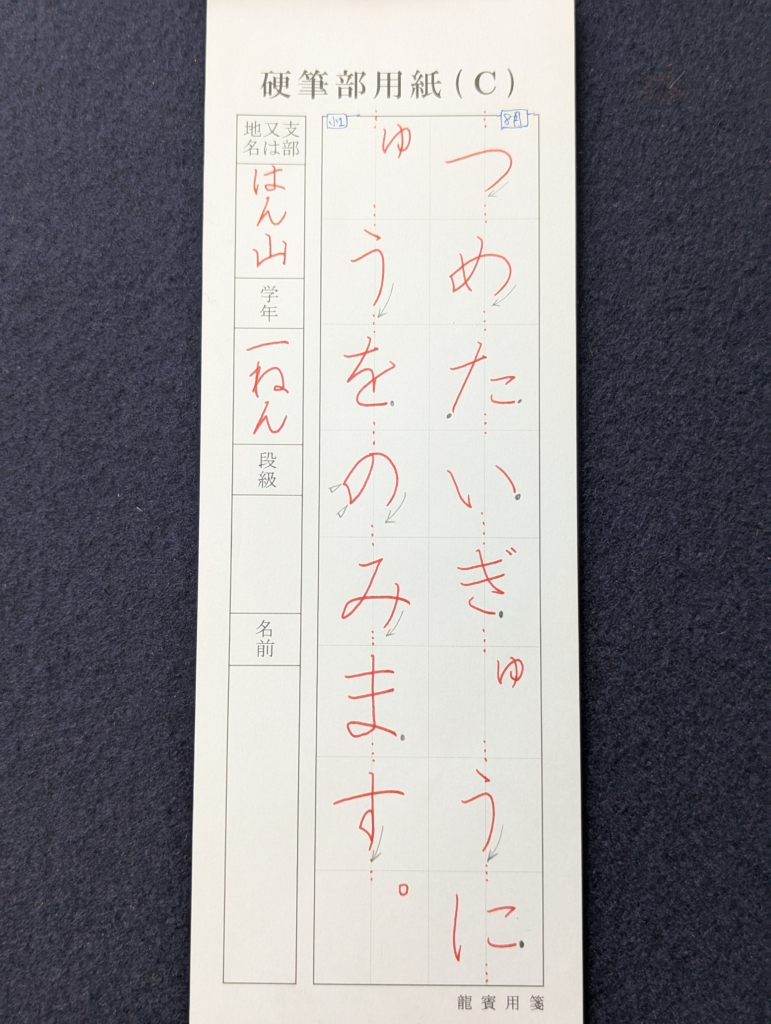 硬筆部用紙(C)
8月
つめたいぎゅうに
小1
ゅうをのみます。
支部又は地名
はん山
学年
一ねん
段級
名前
龍賓用箋